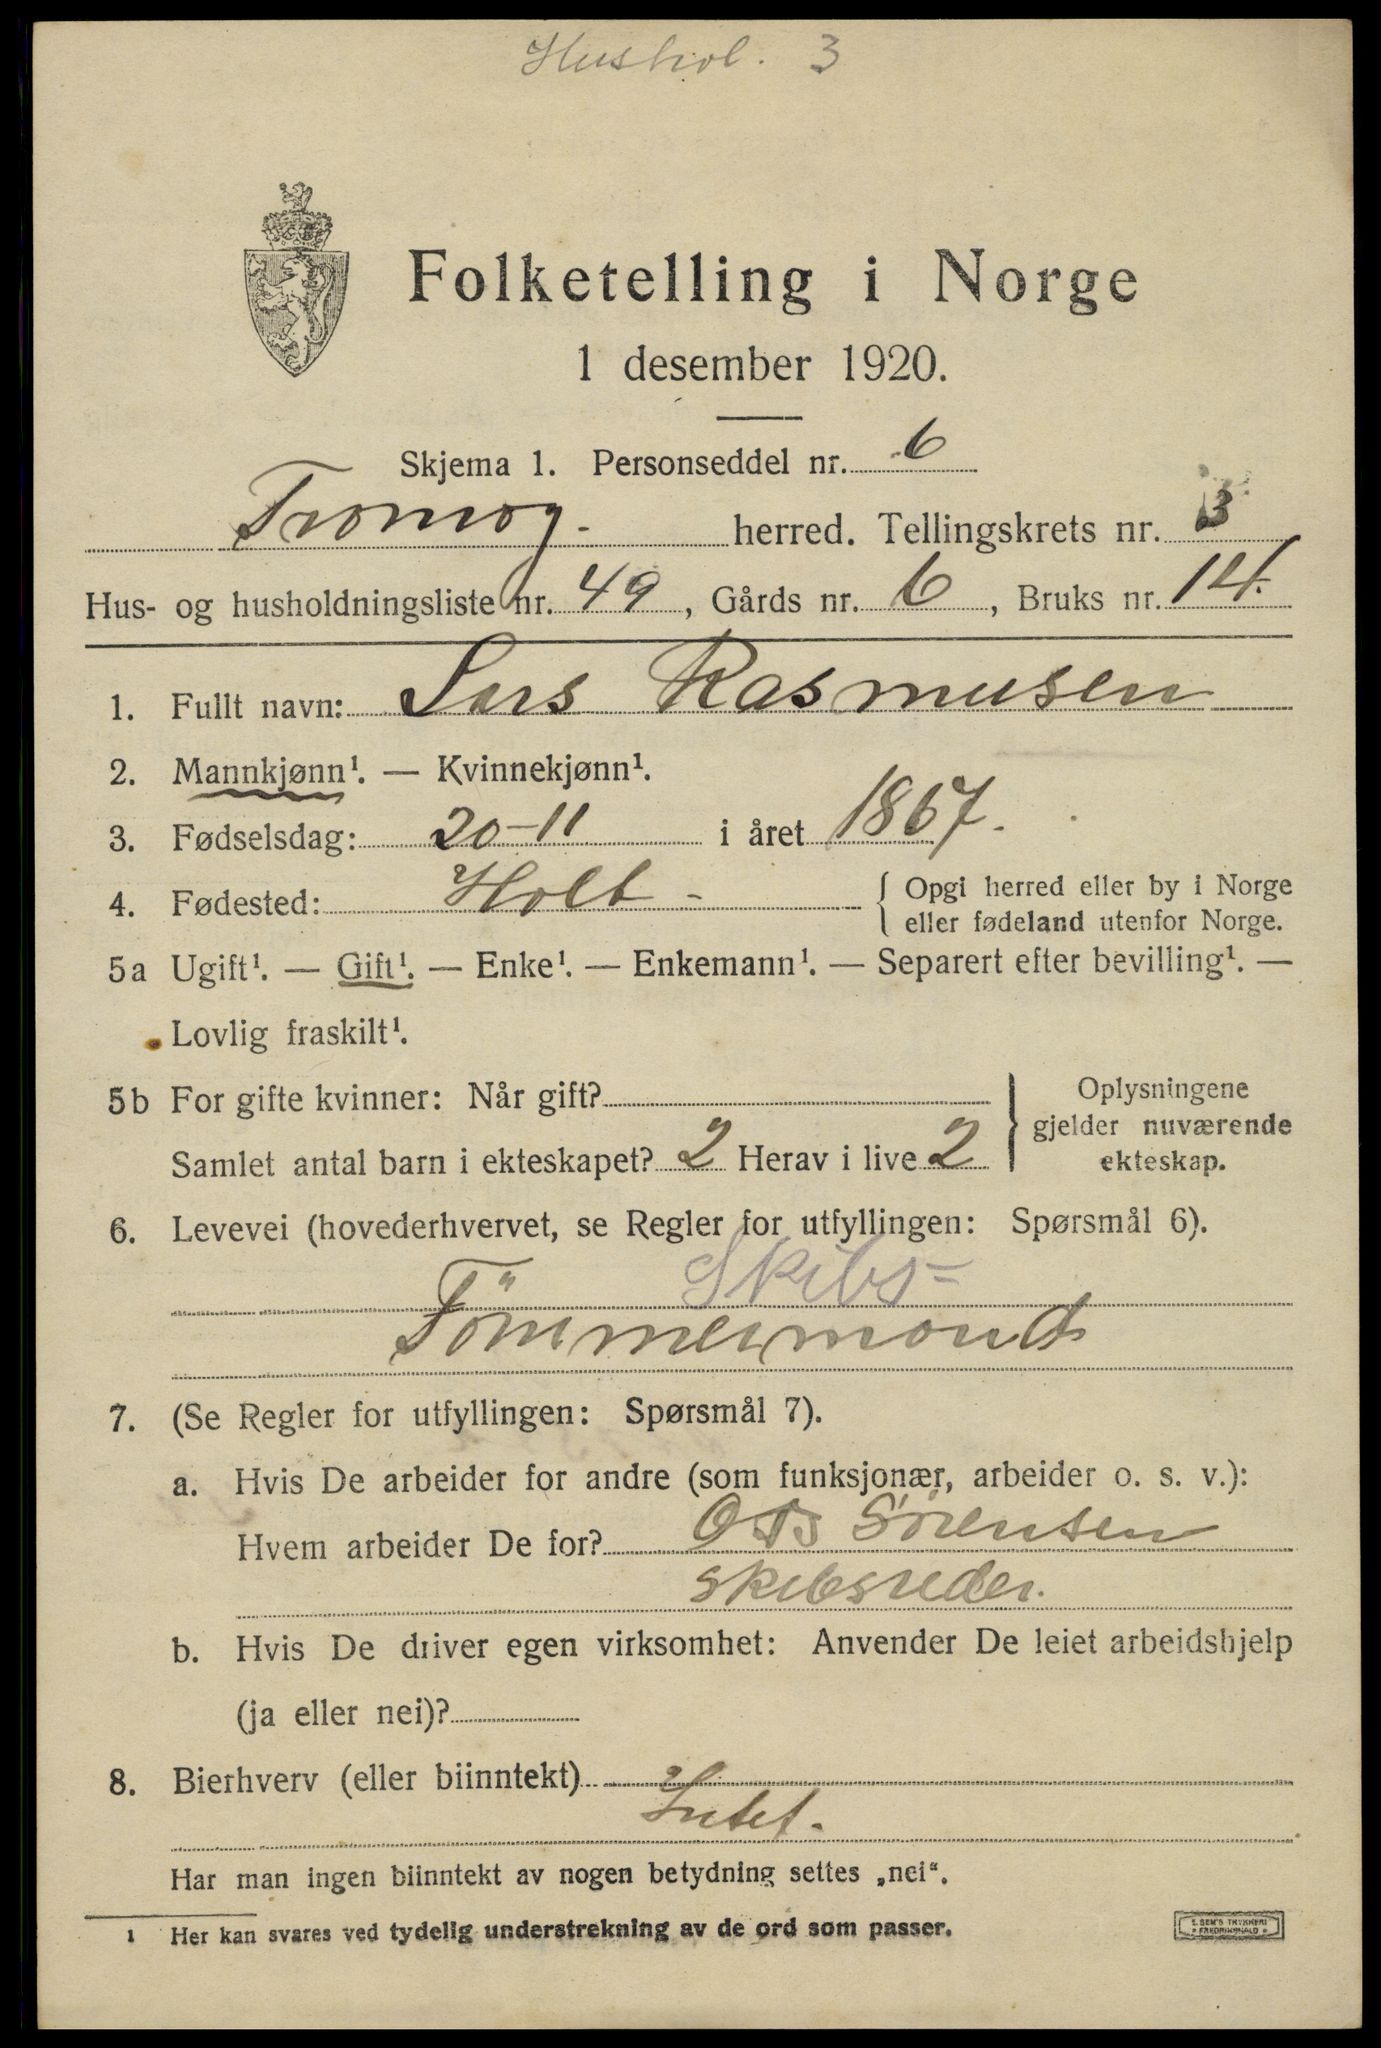 Hushol. 3
Folketelling i Norge
1 desember 1920.
Skjema 1. Personseddel nr. 6
Tromøy. herred. Tellingskrets nr. 3
Hus- og husholdningsliste nr. 49, Gårds nr. 6, Bruks nr. 14.
1. Fullt navn: Lars Rasmusen
2. Mannkjønn¹. — Kvinnekjønn¹.
3. Fødselsdag: 20-11 i året 1867.
4. Fødested: Holt - { Opgi herred eller by i Norge
eller fødeland utenfor Norge.
5a Ugift¹. — Gift¹. — Enke¹. — Enkemann¹. — Separert efter bevilling¹. —
Lovlig fraskilt¹.
5b For gifte kvinner: Når gift? } Oplysningene
gjelder nuværende
Samlet antal barn i ekteskapet? 2 Herav i live 2 ekteskap.
6. Levevei (hovederhvervet, se Regler for utfyllingen: Spørsmål 6).
Skibs-
Tömmermand
7. (Se Regler for utfyllingen: Spørsmål 7).
a. Hvis De arbeider for andre (som funksjonær, arbeider o. s. v.):
Hvem arbeider De for? O B Sörensen
skibsreder.
b. Hvis De driver egen virksomhet: Anvender De leiet arbeidshjelp
(ja eller nei)?
8. Bierhverv (eller biinntekt)
Intet.
Har man ingen biinntekt av nogen betydning settes „nei“.
1 Her kan svares ved tydelig understrekning av de ord som passer.
E. SEM'S TRYKKERI
FREDRIKSHALD